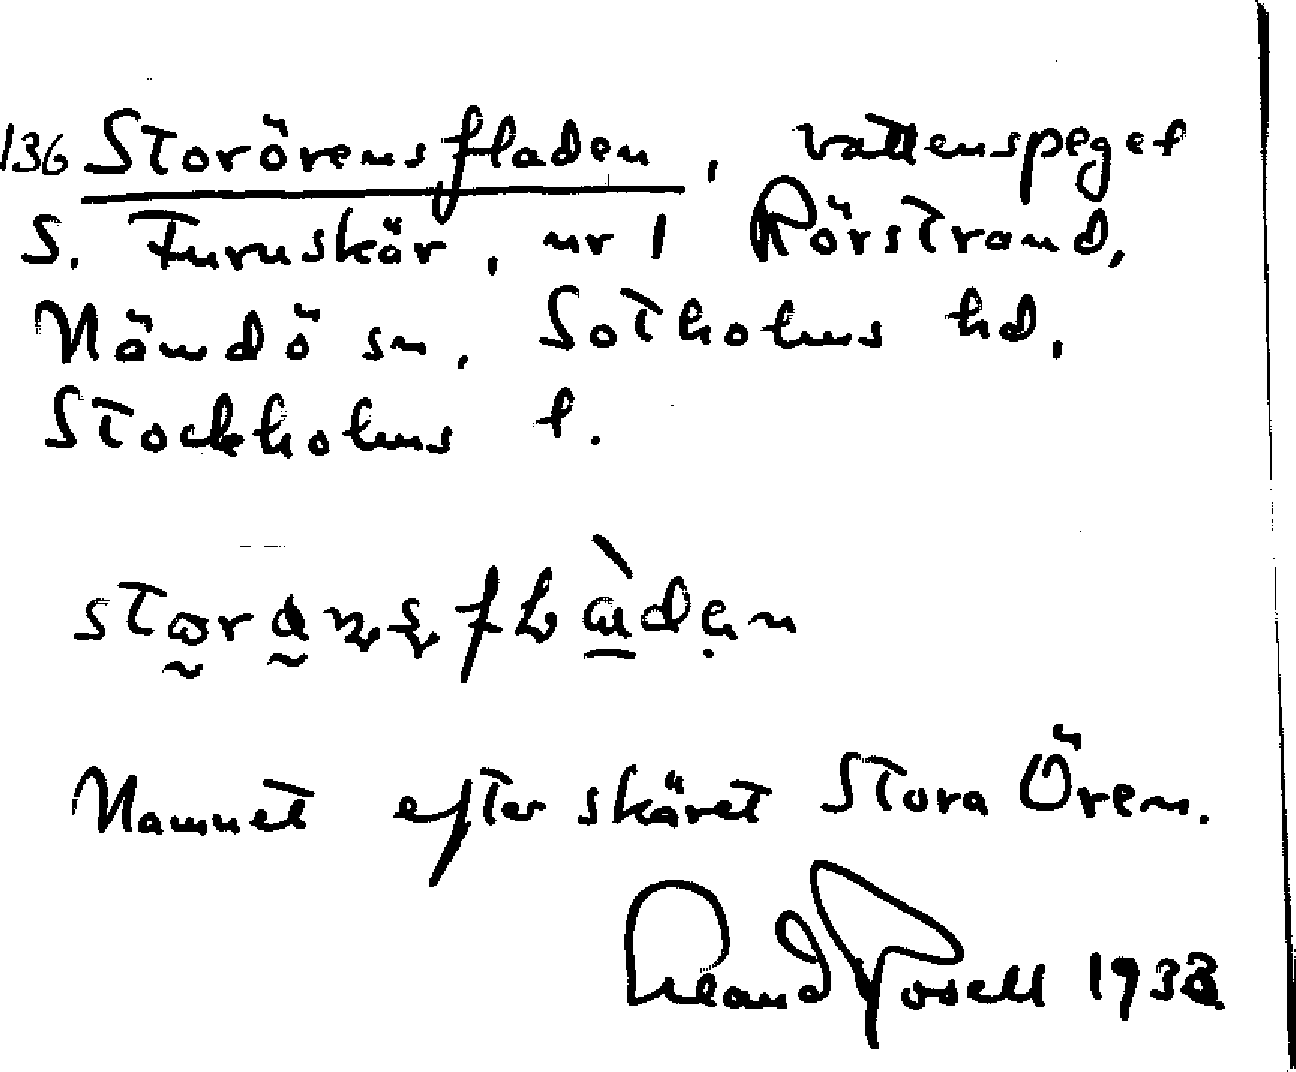 136 Storörensfladen, vattenspegel
S. Furuskär, nr 1 Rörstrand,
Nämdö sn, Sotholms hd,
Stockholms l.
Namnet efter skäret Stora Ören.
Rosell 193